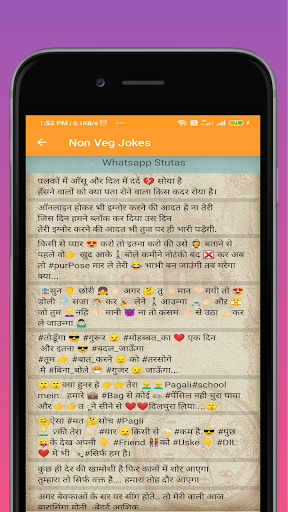 1:52 PM | 0.1KB/s
Non Veg Jokes
Whatsapp Stutas
पलकों में आँसू और दिल में दर्द 💔 सोया है
हँसने वालों को क्या पता रोने वाला किस कदर रोया है।
ऑनलाइन होकर भी इग्नोर करने की आदत हे ना तेरी
जिस दिन हमने ब्लॉक कर दिया उस दिन
तेरी इग्नोर करने की आदत भी तुज पर ही भारी पड़ेगी.
किसी से प्यार 😍 करो तो इतना करो की उसे बताने से
पहले वो 👉 खुद आके कहे कमीने नोटंकी बंद ❌ कर अब
तो #purPose मार ले तेरी 😂 भाभी बन जाउंगी तब मरेगा
क्या...
सुन छोरी अगर तू मान गयी तो
डोली सजा कर लेने आउन्गा और
जो तुम नहि मानी 😈 ना तो कसम से उठा कर
ले जाउन्गा
#तोडूँगा #गुरूर #मोहब्बत_का ❤ एक दिन
और इतना #बदल_जाऊँगा
#तूम #बात_करने को #तरसोगे
मे #बिना_बोले #मुस्कुराऊँगा
क्या हुनर हे तेरा Pagali#school
mein...हमारे #Bag से कोई #पेंसिल नही चुरा पाया
और तु ने सीने से ❤दिलचुरा लिया...
ऐसा #मत सोच #Pagli
की #यार तेरा किसी से #कम है #पूछ
के देख अपनी #Friend को #Uske #DIL
❤ मे भी #सिर्फ हम है।
कुछ ही देर की खामोशी है फिर कानों में शोर आएगा
तुम्हारा तो सिर्फ वक्त है.... हमारा तोह दौर आएगा
अगर बेवफाओं के सर पर सींग होते.. तो मेरी वाली आज